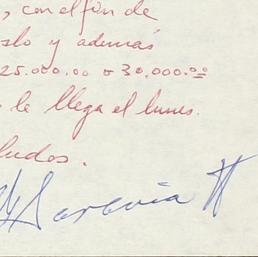 , con el fin de
y además
25.000.00 o 30.000.00
le llega el lunes.
ludos.